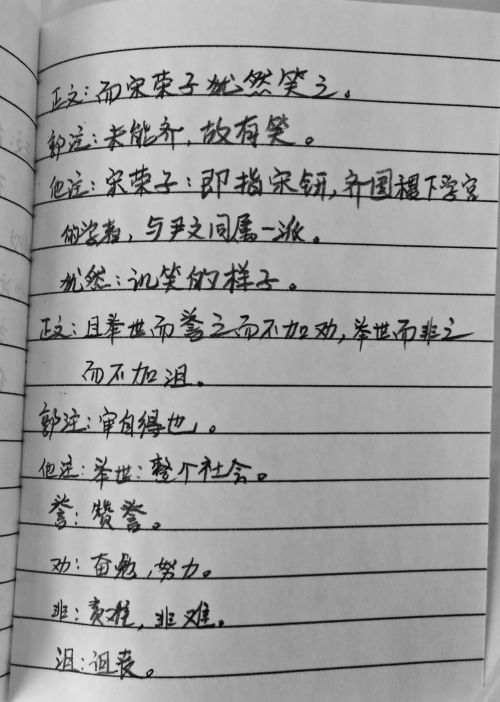 正文：而宋荣子犹然笑之。
郭注：未能齐，故有笑。
他注：宋荣子：即指宋钘，齐国稷下学宫
的学者，与尹文同属一派。
犹然：讥笑的样子。
正文：且举世而誉之而不加劝，举世而非之
而不加沮。
郭注：审自得也。
他注：举世：整个社会。
誉：赞誉。
劝：奋勉，努力。
非：责难，非难。
沮：沮丧。